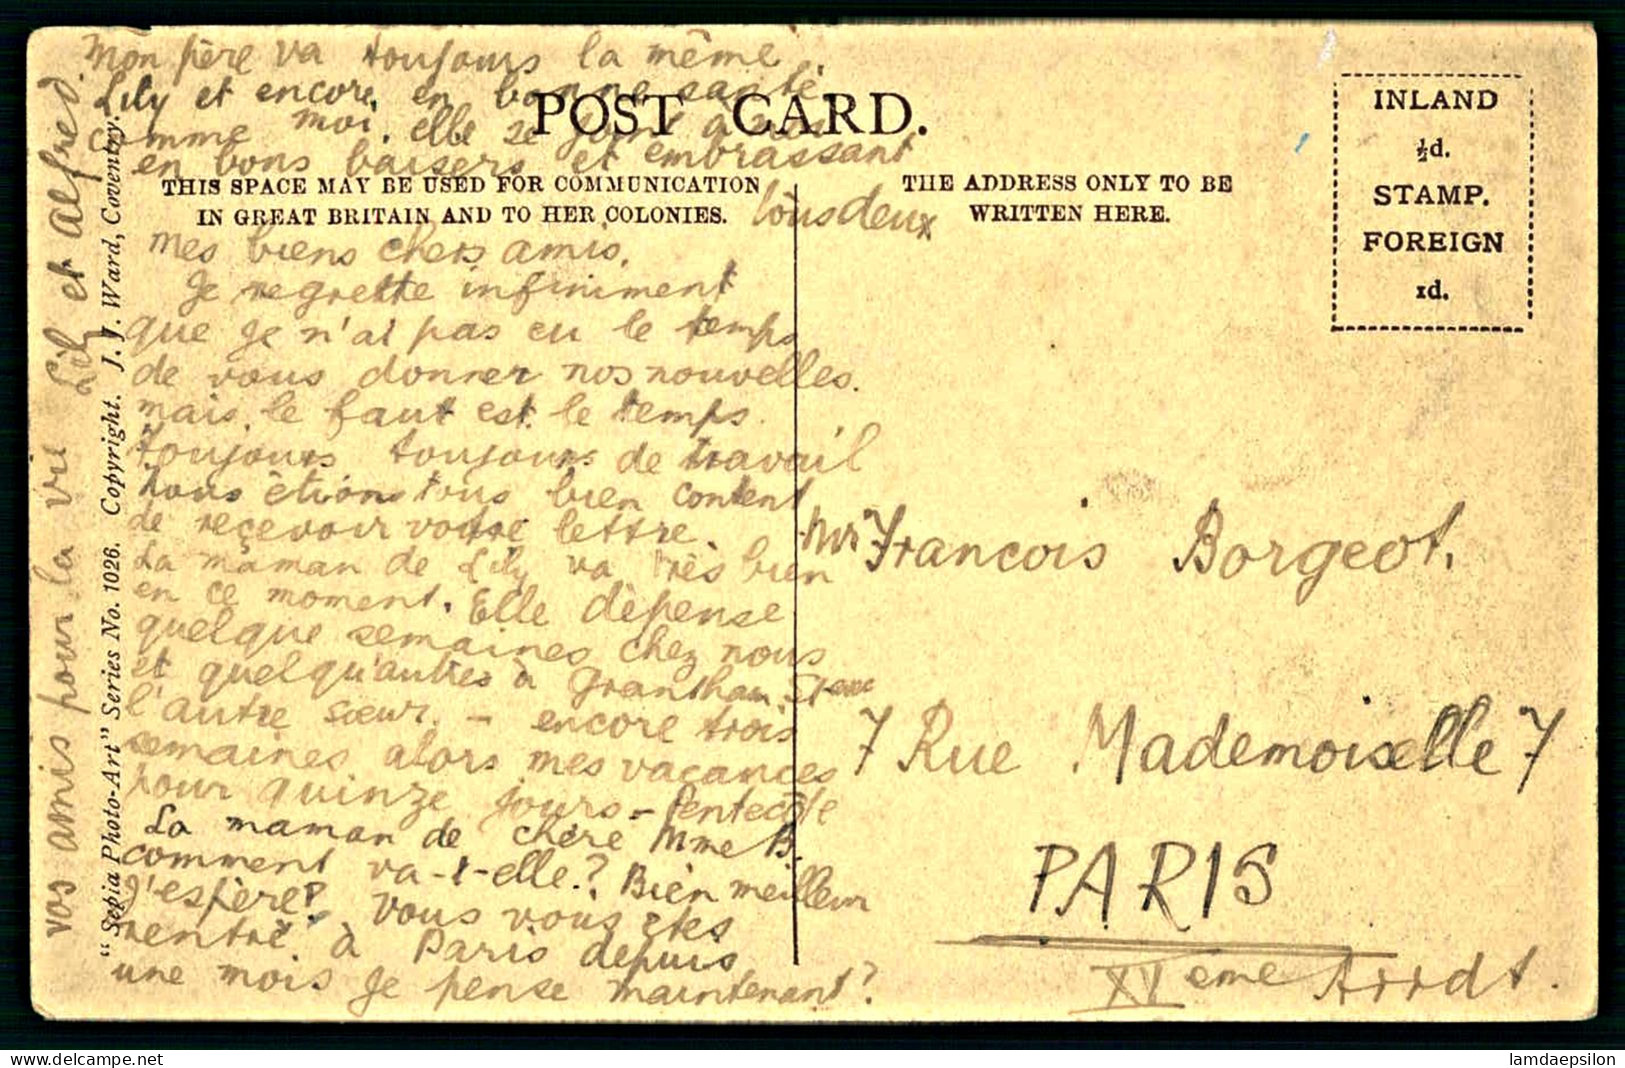 Mon père va toujours la même.
Lily et encore en bonne santé
comme moi. elle se joint à
en bons baisers et embrassant
tous deux
POST CARD.
THIS SPACE MAY BE USED FOR COMMUNICATION
IN GREAT BRITAIN AND TO HER COLONIES.
THE ADDRESS ONLY TO BE
WRITTEN HERE.
INLAND
½d.
STAMP.
FOREIGN
1d.
mes biens chers amis.
Je regrette infiniment
que je n'ai pas eu le temps
de vous donner nos nouvelles.
mais, le faut est le temps.
toujours toujours de travail
nous étions tous bien content
de reçevoir votre lettre.
La maman de Lily va très bien
en ce moment. Elle dépense
quelque semaines chez nous
et quelqu'autres à Grantham
l'autre sœur. - encore trois
semaines alors mes vacances
pour quinze jours - Pentecôte
La maman de chère Mme B.
comment va-t-elle? Bien meilleur
j'espère? vous vous êtes
rentré à Paris depuis
une mois je pense maintenant?
vos amis pour la vie Lily et alfred.
"Sepia Photo-Art" Series No. 1026. Copyright. J. J. Ward, Coventry.
Mr François Borgeot.
7 Rue Mademoiselle 7
PARIS
XVeme Arrdt.
www.delcampe.net
lamdaepsilon